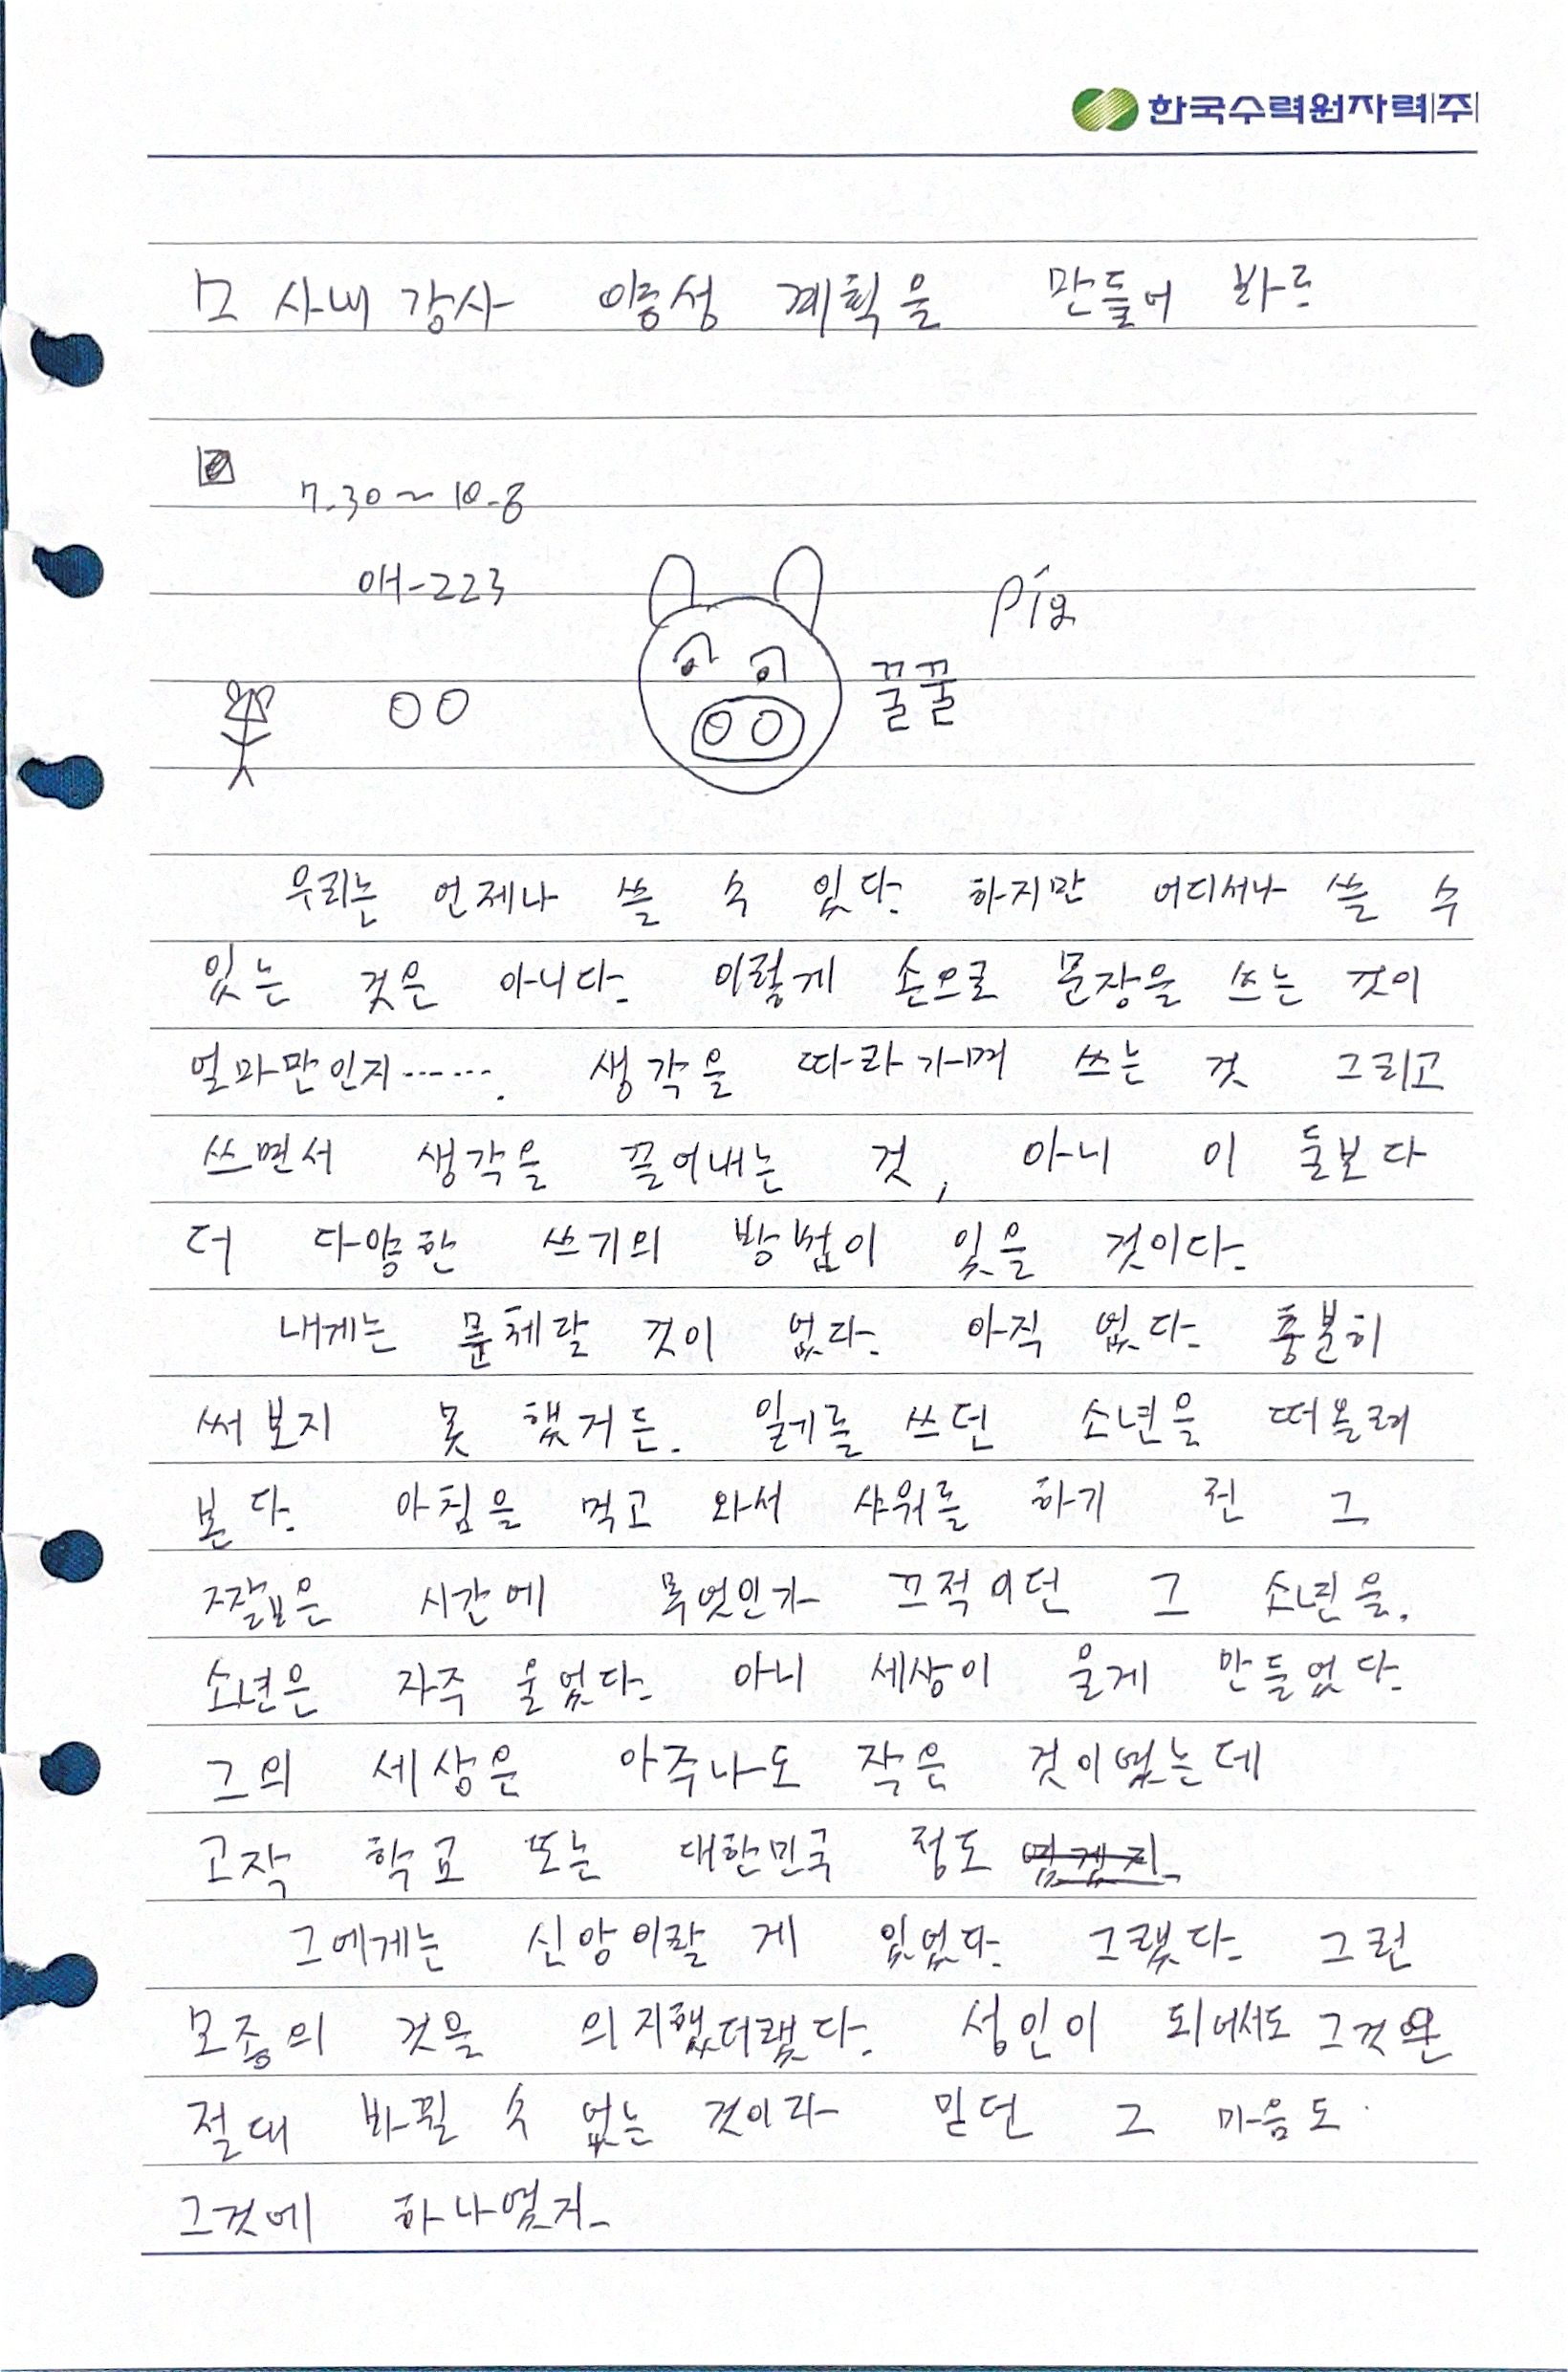 한국수력원자력(주)
모 사내강사 양성 계획을 만들어 바르
7.30~10.8
애-223
Pig
꿀꿀
우리는 언제나 쓸 수 있다. 하지만 어디서나 쓸 수
있는 것은 아니다. 이렇게 손으로 문장을 쓰는 것이
얼마만인지……. 생각을 따라가며 쓰는 것 그리고
쓰면서 생각을 끌어내는 것, 아니 이 둘보다
더 다양한 쓰기의 방법이 있을 것이다.
내게는 문체랄 것이 없다. 아직 없다. 충분히
써보지 못 했거든. 일기를 쓰던 소년을 떠올려
본다. 아침을 먹고 와서 샤워를 하기 전 그
짧은 시간에 무엇인가 끄적이던 그 소년을.
소년은 자주 울었다. 아니 세상이 울게 만들었다.
그의 세상은 아주나도 작은 것이었는데
고작 학교 또는 대한민국 정도 였겠지.
그에게는 신앙이랄 게 있었다. 그랬다. 그런
모종의 것을 의지했더랬다. 성인이 되어서도 그것은
절대 바뀔 수 없는 것이라 믿던 그 마음도
그것에 하나였지.